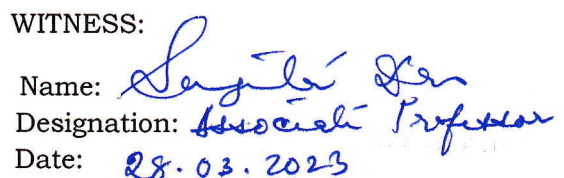 WITNESS:
Name:
Designation: Associate Professor
Date: 28.03.2023